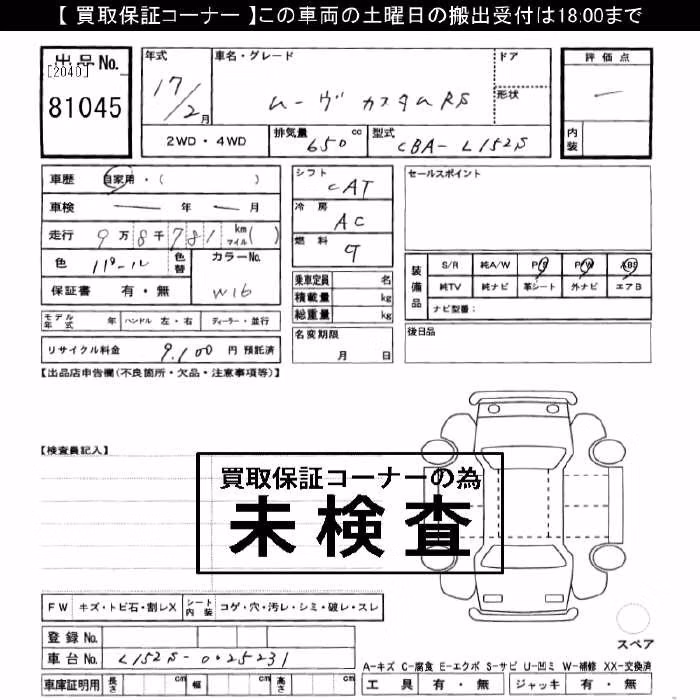 【 買取保証コーナー 】この車両の土曜日の搬出受付は18:00まで
出品No.
[2040]
81045
年式
車名・グレード
ドア
評価点
17/2月
ムーヴ カスタムRS
形状
ー
2WD・4WD
排気量 650 cc
型式 CBA-L152S
内装
車歴 自家用・( )
シフト CAT
セールスポイント
車検 ー 年 ー 月
冷房 AC
走行 9万8千781 km マイル( )
燃料 G
色 パール 色替
カラーNo. W16
装備品
S/R 純A/W P/S P/W ABS
純TV 純ナビ 革シート 外ナビ エアB
ナビ型量:
保証書 有・無
乗車定員 名
積載量 kg
総重量 kg
モデル年式 年 ハンドル 左・右 ディーラー・並行
名変期限 月 日
後日品
リサイクル料金 9,100 円 預託済
【出品店申告欄(不良箇所・欠品・注意事項等)】
【検査員記入】
買取保証コーナーの為
未検査
FW キズ・トビ石・割レX シート内装 コゲ・穴・汚レ・シミ・破レ・スレ
スペア
登録No.
車台No. L152S-0025231
A-キズ C-腐食 E-エクボ S-サビ U-凹ミ W-補修 XX-交換済
車庫証明用 長さ cm 幅 cm 高さ cm
工具 有・無 ジャッキ 有・無